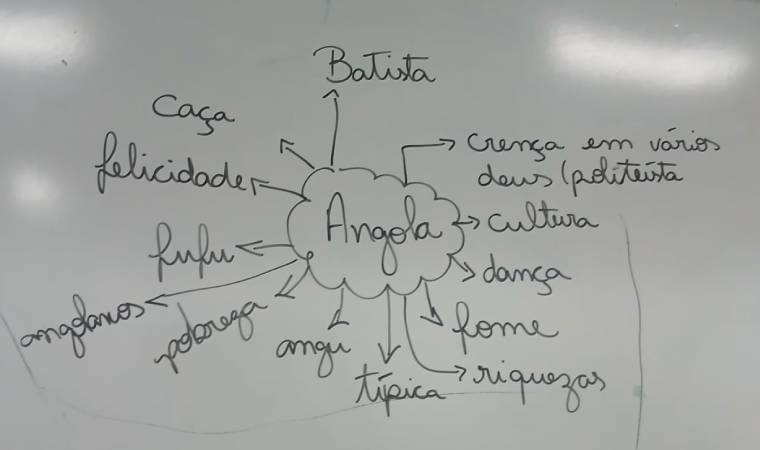 Batista
Caça
crença em vários
deus (politeísta
felicidade
Angola
cultura
fufu
dança
angolanos
pobreza
angu
fome
típica
riquezas